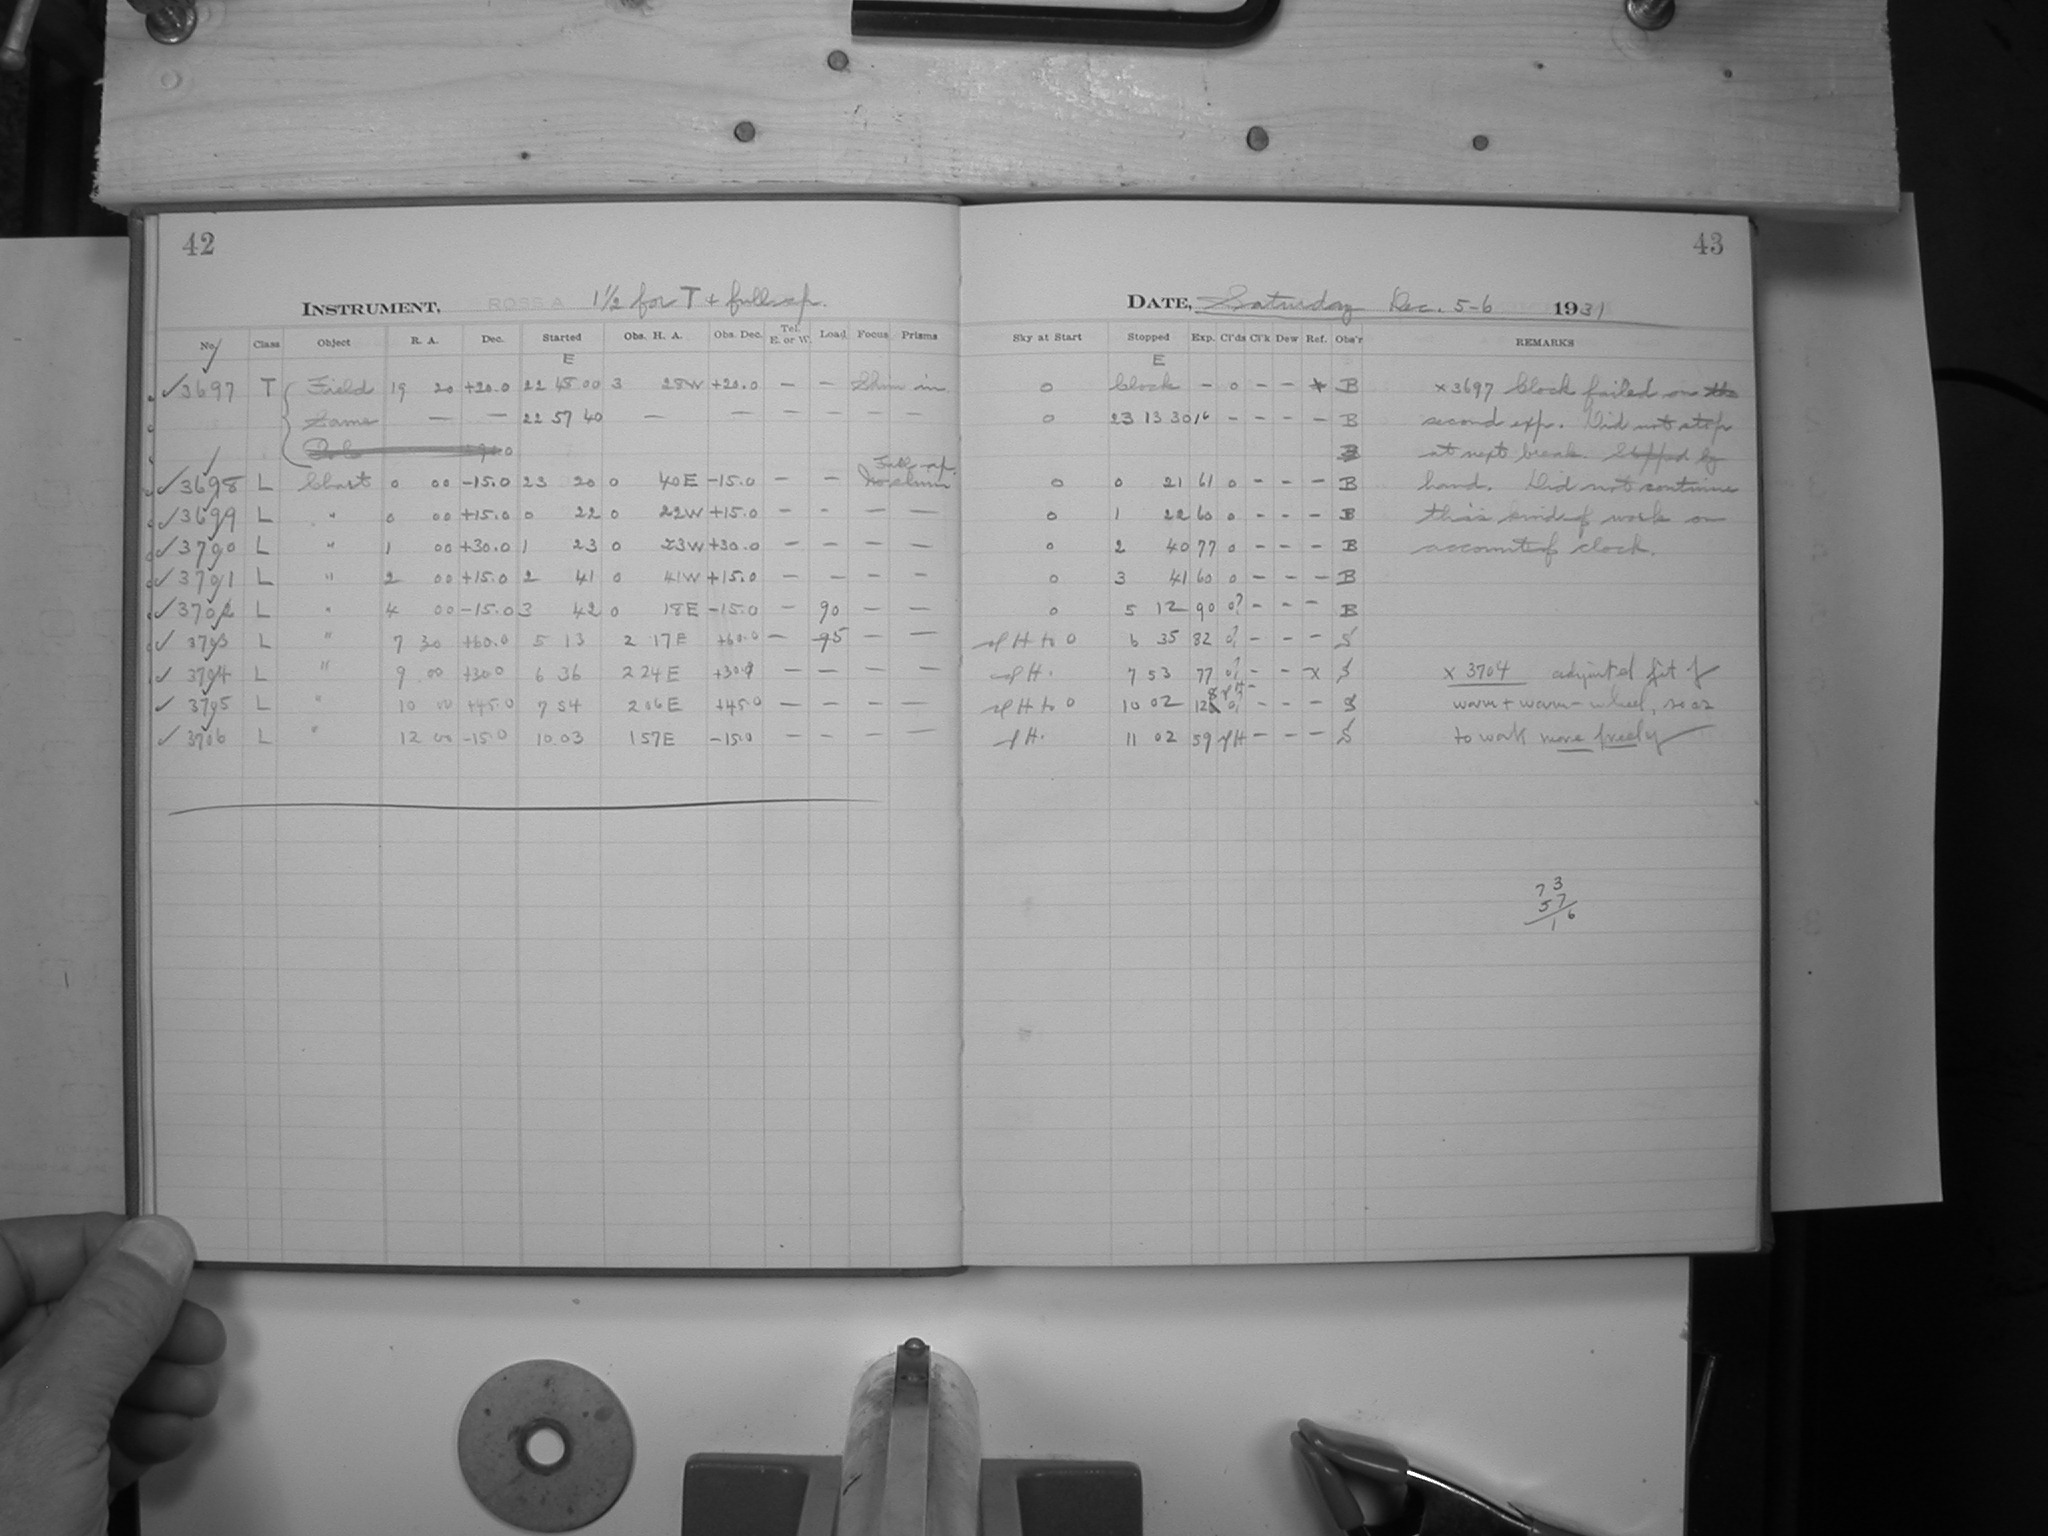 42
43
INSTRUMENT, ROSS A 1½ for T + full ap.
DATE, Saturday Dec. 5-6 1931
No. Class Object R. A. Dec. Started Obs. H. A. Obs. Dec. Tel. E. or W. Load Focus Prisms
Sky at Start Stopped Exp. Cl'ds Cl'k Dew Ref. Obs'r REMARKS
E
E
✓3697 T Field 19 20 +20.0 22 45 00 3 28W +20.0 — — Shim in
0 Clock – 0 – – * B × 3697 Clock failed on the
Same — — 22 57 40 — — — — — —
0 23 13 30 16 – – – – B second exp. Did not stop
B at next break. Stopped by
Full ap.
✓3698 L Chart 0 00 -15.0 23 20 0 40E -15.0 — — No shim
0 0 21 61 0 – – – B hand. Did not continue
✓3699 L " 0 00 +15.0 0 22 0 22W +15.0 – – — —
0 1 22 60 0 – – – B this kind of work on
✓3700 L " 1 00 +30.0 1 23 0 23W +30.0 — — — —
0 2 40 77 0 – – – B account of clock.
✓3701 L " 2 00 +15.0 2 41 0 41W +15.0 — — — —
0 3 41 60 0 – – – B
✓3702 L " 4 00 -15.0 3 42 0 18E -15.0 – 90 — —
0 5 12 90 0? – – – B
✓3703 L " 7 30 +60.0 5 13 2 17E +60.0 — 95 — —
spH to 0 6 35 82 0? – – – S
✓3704 L " 9 00 +30.0 6 36 2 24E +30.0 — — — —
spH. 7 53 77 0? – – x S × 3704 adjusted fit of
✓3705 L " 10 00 +45.0 7 54 2 06E +45.0 — — — —
spH to 0 10 02 128 – – – S worm + worm-wheel, so as
✓3706 L " 12 00 -15.0 10 03 1 57E -15.0 — — — —
spH. 11 02 59 spH – – – S to work more freely
73
57
16